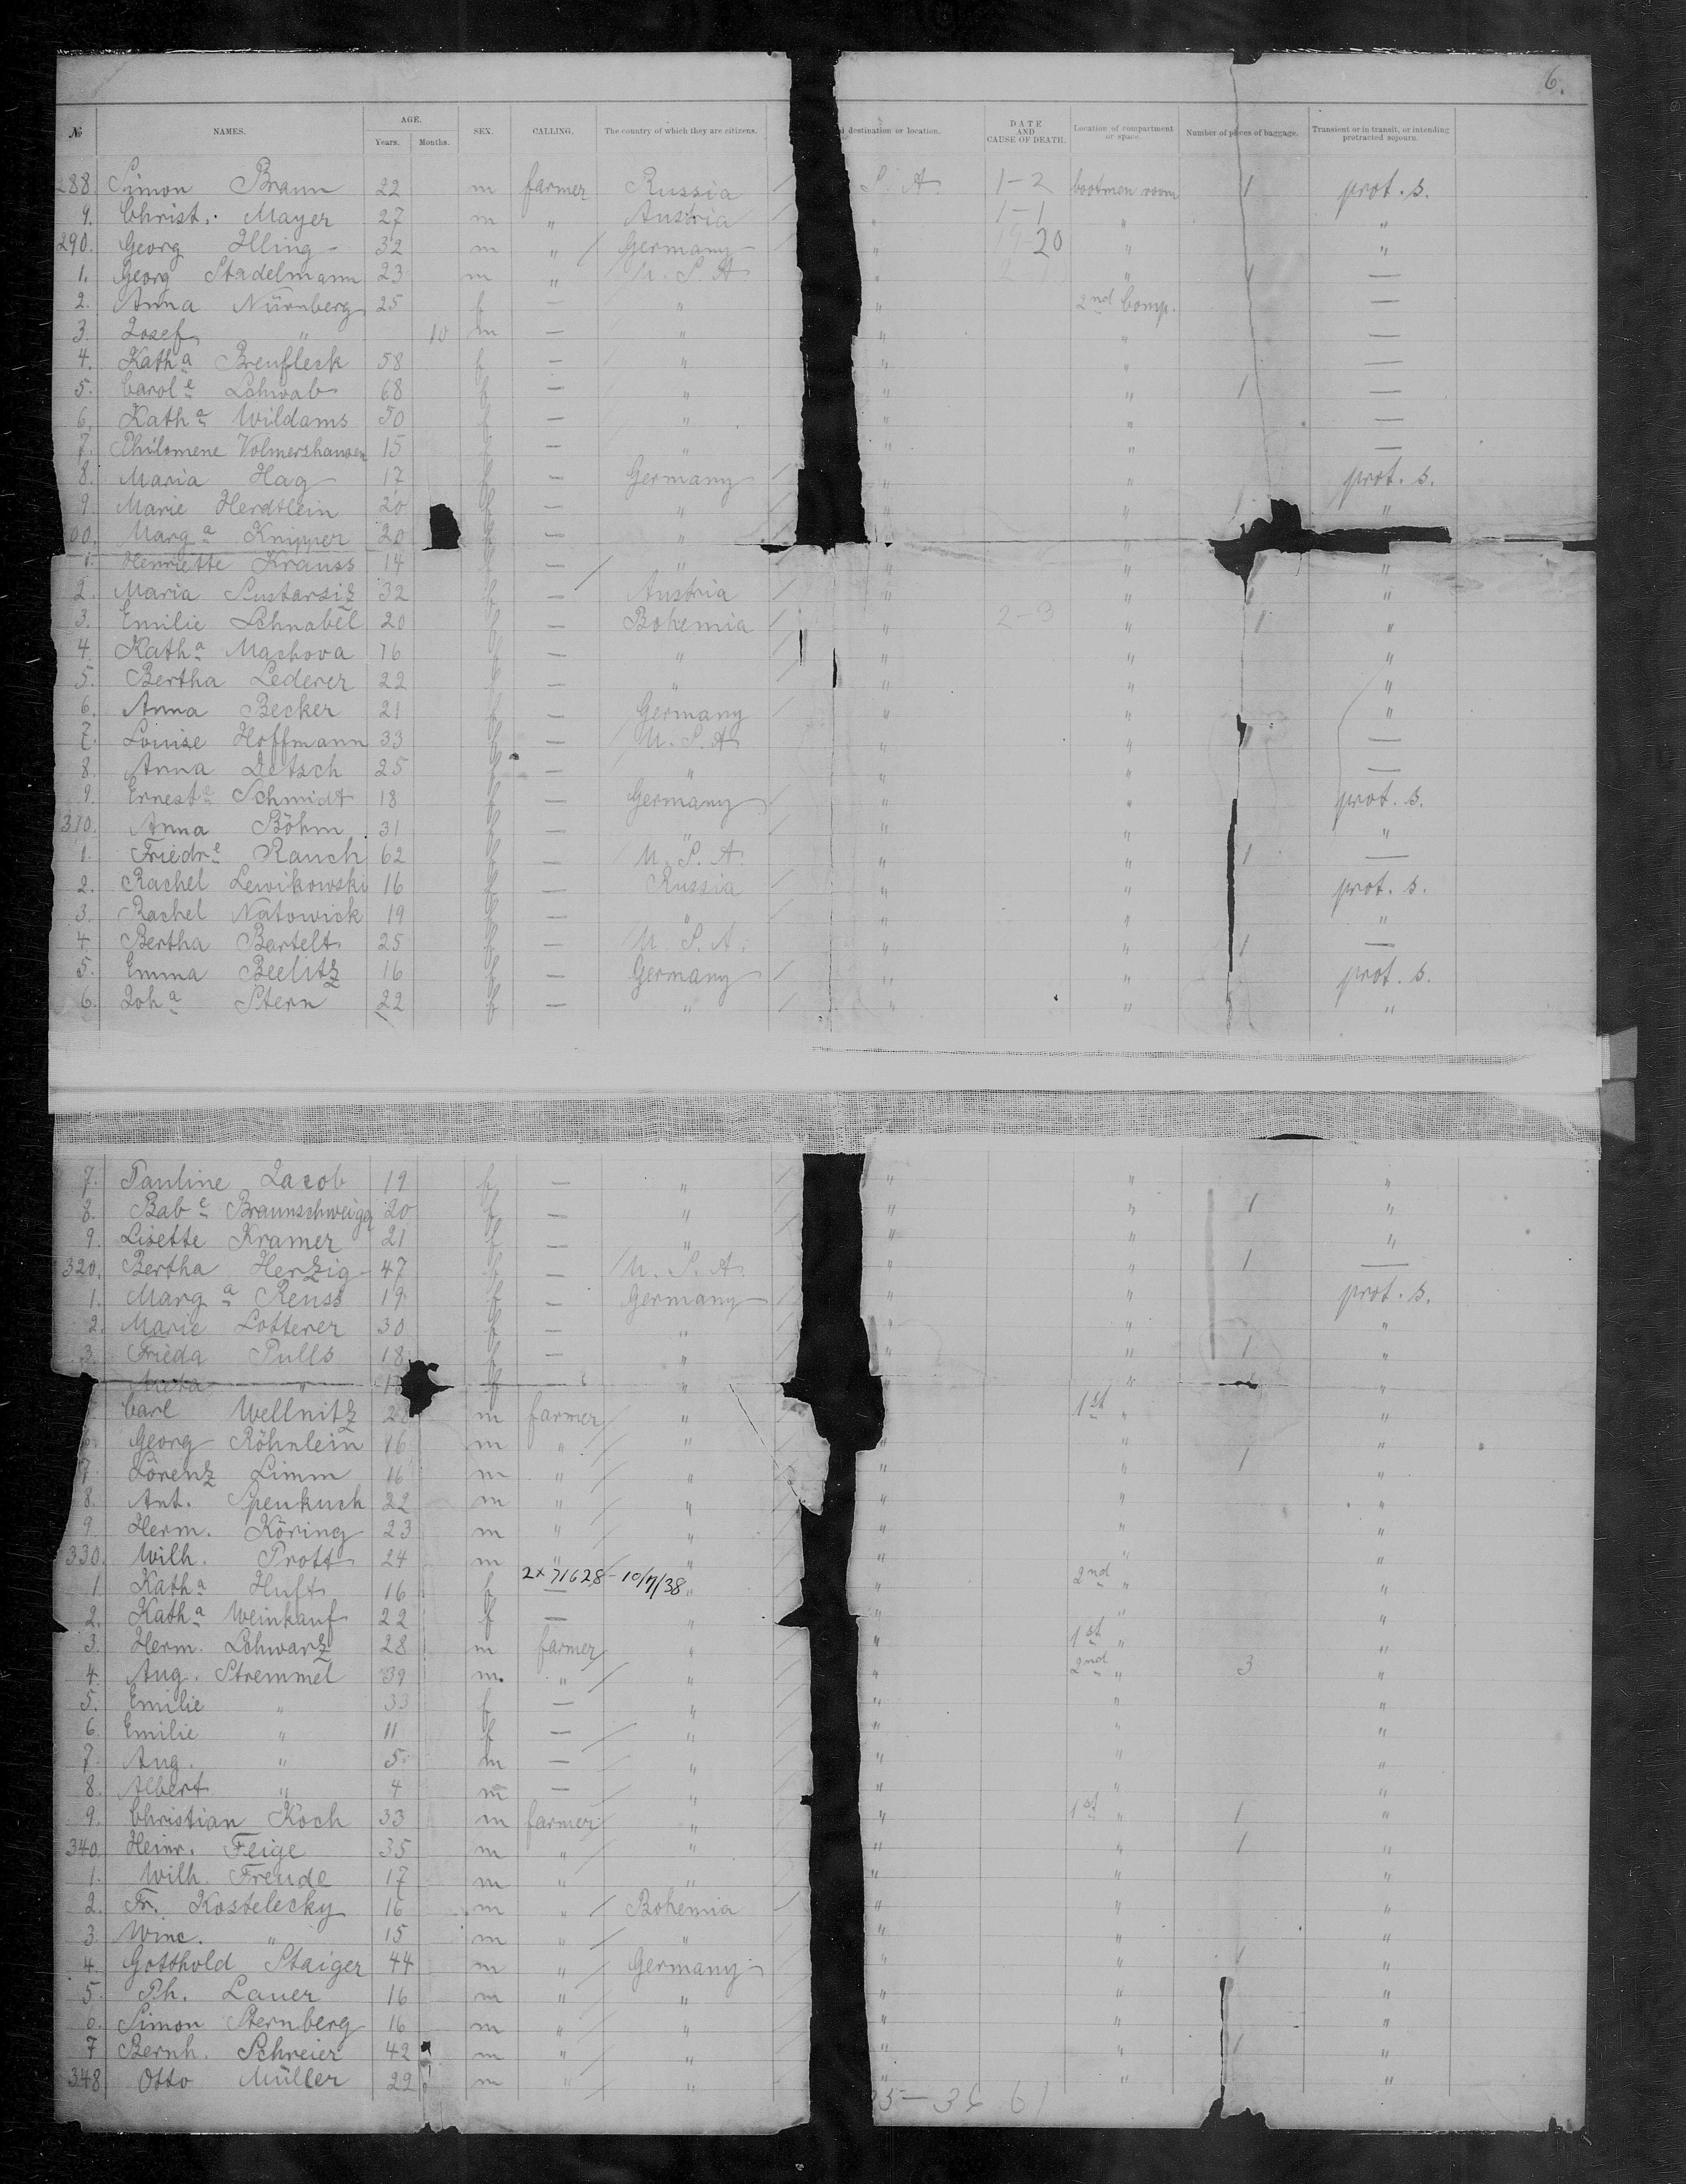 6.
№ NAMES. AGE. Years. Months. SEX. CALLING. The country of which they are citizens. destination or location. DATE AND CAUSE OF DEATH. Location of compartment or space. Number of pieces of baggage. Transient or in transit, or intending protracted sojourn.
288 Simon Braun 22 m farmer Russia / S. A. 1-2 bootmen room 1 prot. s.
9. Christ. Mayer 27 m " Austria / " 1-1 " "
290. Georg Illing 32 m " / Germany / " 20 " "
1. Georg Stadelmann 23 m " U. S. A. " " 1 —
2. Anna Nürnberg 25 f — " " 2nd Comp. —
3. Josef " 10 m — " " " —
4. Katha Breufleck 58 f — " " " —
5. Carole Schwab 68 f — " " " 1 —
6. Katha Wildams 50 f — " " " —
7. Philomene Volmershausen 15 f — " " " —
8. Maria Hag 17 f — Germany / " " prot. s.
9. Marie Herdtlein 20 f — " / " " 1 "
00. Marga Knipper 20 f — " / "
1. Henriette Krauss 14 f — / " / " " "
2. Maria Sustarsiz 32 f — Austria / " " 1 "
3. Emilie Schnabel 20 f — Bohemia / " 2-3 " 1 "
4. Katha Machova 16 f — " / " " "
5. Bertha Lederer 22 f — " / " " "
6. Anna Becker 21 f — Germany / " " "
7. Louise Hoffmann 33 f — U. S. A. " " 1 —
8. Anna Detsch 25 f — " " " —
9. Erneste Schmidt 18 f — Germany / " " prot. s.
310. Anna Böhm 31 f — " / " " "
1. Friedre Rauch 62 f — U. S. A. " " 1 —
2. Rachel Lewikowski 16 f — Russia / " " prot. s.
3. Rachel Natowick 19 f — " / " " "
4. Bertha Bartelt 25 f — U. S. A. " " 1 —
5. Emma Beelitz 16 f — Germany / " " prot. s.
6. Joha Stern 22 f — " / " " "
7. Pauline Jacob 19 f — " / " " "
8. Babe Braunschweiger 20 f — " / " " 1 "
9. Lisette Kramer 21 f — " / " " "
320. Bertha Herzig 47 f — U. S. A. " " 1 —
1. Marga Reuss 19 f — Germany / " " prot. s.
2. Marie Lotterer 30 f — " / " " "
3. Frieda Pulls 18 f — " / " " 1 "
Meta " f — " / " " "
Carl Wellnitz m farmer / " / 1st " "
6 Georg Röhnlein 16 m " / " / " " "
7 Lorenz Limm 16 m " / " / " " 1 "
8. Ant. Spenkuch 22 m " / " / " " "
9. Herm. Köring 23 m " / " / " " "
330. Wilh. Prott 24 m " / " / " " "
2x71628-10/7/38
1. Katha Huft 16 f — " / " 2nd " "
2. Katha Weinkauf 22 f — " / " " "
3. Herm. Schwarz 28 m farmer / " / " 1st " "
4. Aug. Stremmel 39 m. " / " / " 2nd " 3 "
5. Emilie " 33 f — " / " " "
6. Emilie " 11 f — / " / " " "
7. Aug. " 5 m — / " / " " "
8. Albert " 4 m — / " / " " "
9. Christian Koch 33 m farmer / " / " 1st " 1 "
340. Heinr. Feige 35 m " / " / " " 1 "
1. Wilh. Freude 17 m " / " / " " "
2. Fr. Kostelecky 16 m " / Bohemia / " " "
3. Winc. " 15 m " / " / " " "
4. Gotthold Staiger 44 m " / Germany / " " 1 "
5. Ph. Lauer 16 m " / " / " " "
6. Simon Sternberg 16 m " / " / " " "
7 Bernh. Schreier 42 m " / " / " " 1 "
348 Otto Müller 22 m " / " / " " "